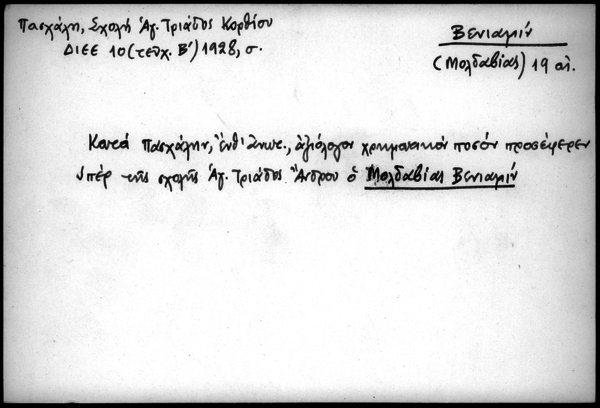 Πασχάλη, Σχολή Ἁγ. Τριάδος Κορθίου
ΔΙΕΕ 10 (τεῦχ. Β΄) 1928, σ.
Βενιαμίν
(Μολδαβίας) 19 αἰ.
Κατά Πασχάλην, ἔνθ' ἄνωτ., ἀξιόλογον χρηματικόν ποσόν προσέφερεν
ὑπέρ τῆς σχολῆς Ἁγ. Τριάδος Ἄνδρου ὁ Μολδαβίας Βενιαμίν